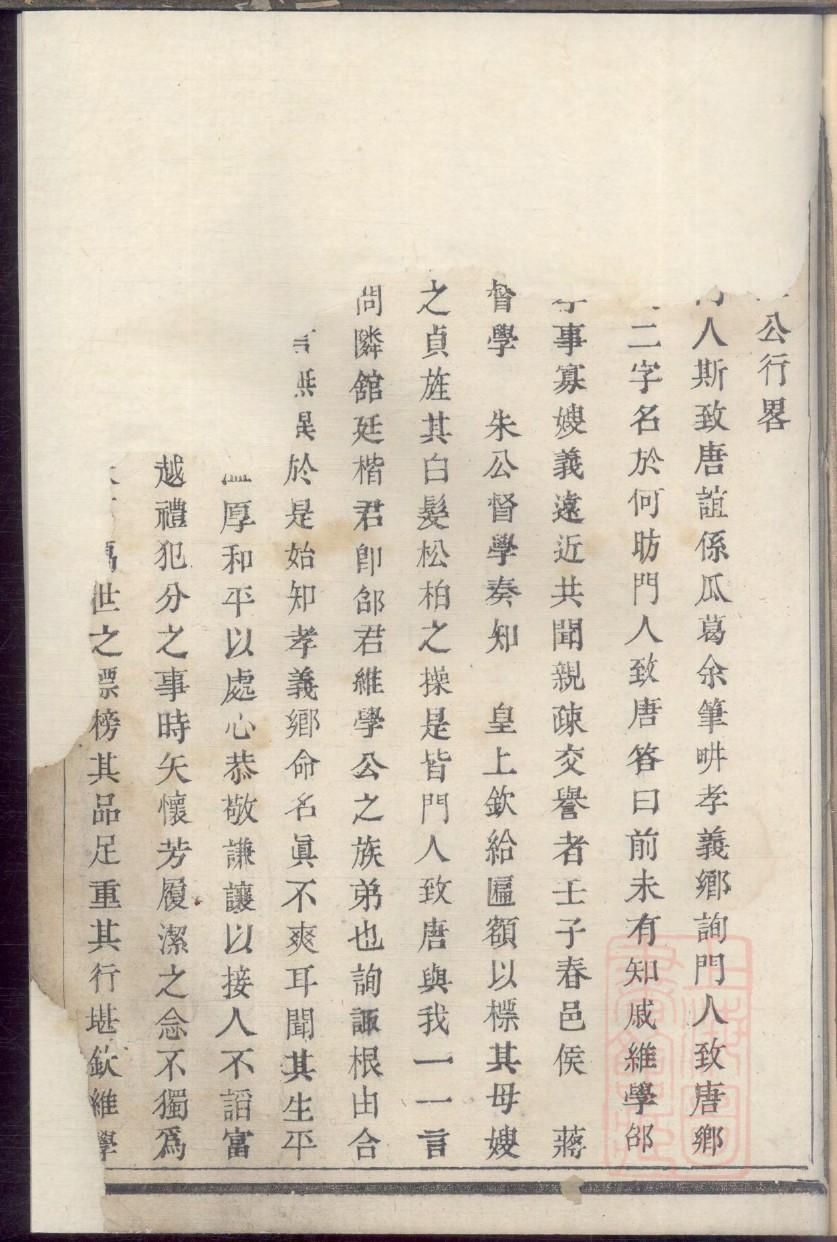 公行畧
人斯致唐誼係瓜葛余筆畊孝義鄉詢門人致唐鄉
二字名於何昉門人致唐答曰前未有知戚維學邰
事寡嫂義遠近共聞親疎交譽者壬子春邑侯 蔣
督學 朱公督學奏知 皇上欽給匾額以標其母嫂
之貞旌其白髮松柏之操是皆門人致唐與我一一言
問隣舘廷楷君卽邰君維學公之族弟也詢諏根由合
於是始知孝義鄉命名眞不爽耳聞其生平
厚和平以處心恭敬謙讓以接人不謟富
越禮犯分之事時矢懷芳履潔之念不獨爲
世之標榜其品足重其行堪欽維學